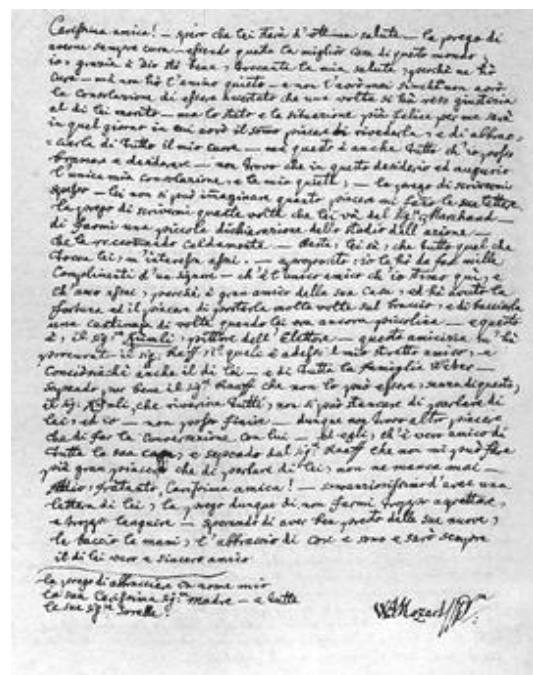 Carissima amica! — spero che lei starà d'ottima salute — la prego di
averne sempre cura — essendo questa la miglior cosa di questo mondo;
io, grazia à Dio stò bene, toccante la mia salute, perchè ne hò
cura — mà non hò l'animo quieto — e non l'avrò mai finchè non avrò
la consolazione di essere accertato che una volta si hà reso giustizia
al di lei merito — ma lo stato e la situazione più felice per me sarà
in quel giorno in cui avrò il sommo piacere di rivederla, e di abbrac,
ciarla di tutto il mio cuore — mà questo è anche tutto ch'io posso
bramare e desiderare — non trovo che in questo desiderio ed augurio
l'unica mia consolazione, e la mia quiete; — la prego di scrivermi
spesso — lei non si può imaginare quanto piacere mi fano le sue lettere.
la prego di scrivermi quante volte che lei và dal Sig: Marchand —
di farmi una piccola dichiarazione dello studio dell'azione —
che le raccomando caldamente — Basta, lei sà, che tutto quel che
tocca lei, m'interessa assai. — à proposito; io le hò da far mille
Complimenti d'un signore — ch'è l'unico amico ch'io stimo qui, e
ch'amo assai, perchè è gran amico della sua Casa, ed hà avuto la
fortuna ed il piacere di portarla molte volte sul braccio, e di bacciarla
una centinaja di volte quando lei era ancora piccolina — e questo
è, il sig: Kümli, pittore dell'Elettore — questa amicizia m'hà
procurato il sig: Raaff, il quale è adesso 'l mio stretto amico, e
Conciosiachè anche il di lei — e di tutta la famiglia Weber —
sapendo pur bene il sig: Raaff che non lo può essere senza di questo,
il sig: Kümli, che riverisce tutti, non si può stancare di parlare di
lei, ed io — non posso finire — dunque non trovo altro piacere
che di far la Conversazione con lui — ed egli, ch'è vero amico di
tutta la sua casa, e sapendo dal sig: Raaff che non mi può fare
più gran piacere che di parlare di lei, non ne manca mai —
Addio, frattanto, Carissima amica! — sono ansiosissimo d'avere una
lettera di lei, la prego dunque di non farmi troppo aspettare,
e troppo languire — sperando di aver ben presto delle sue nuove,
le baccio le mani, l'abbraccio di core e sono e sarò sempre
il di lei vero e sincero amico
la prego di abbracciare in nome mio
la sua Carissima sig: madre — e tutte
le sue sig: sorelle.
WAMozart